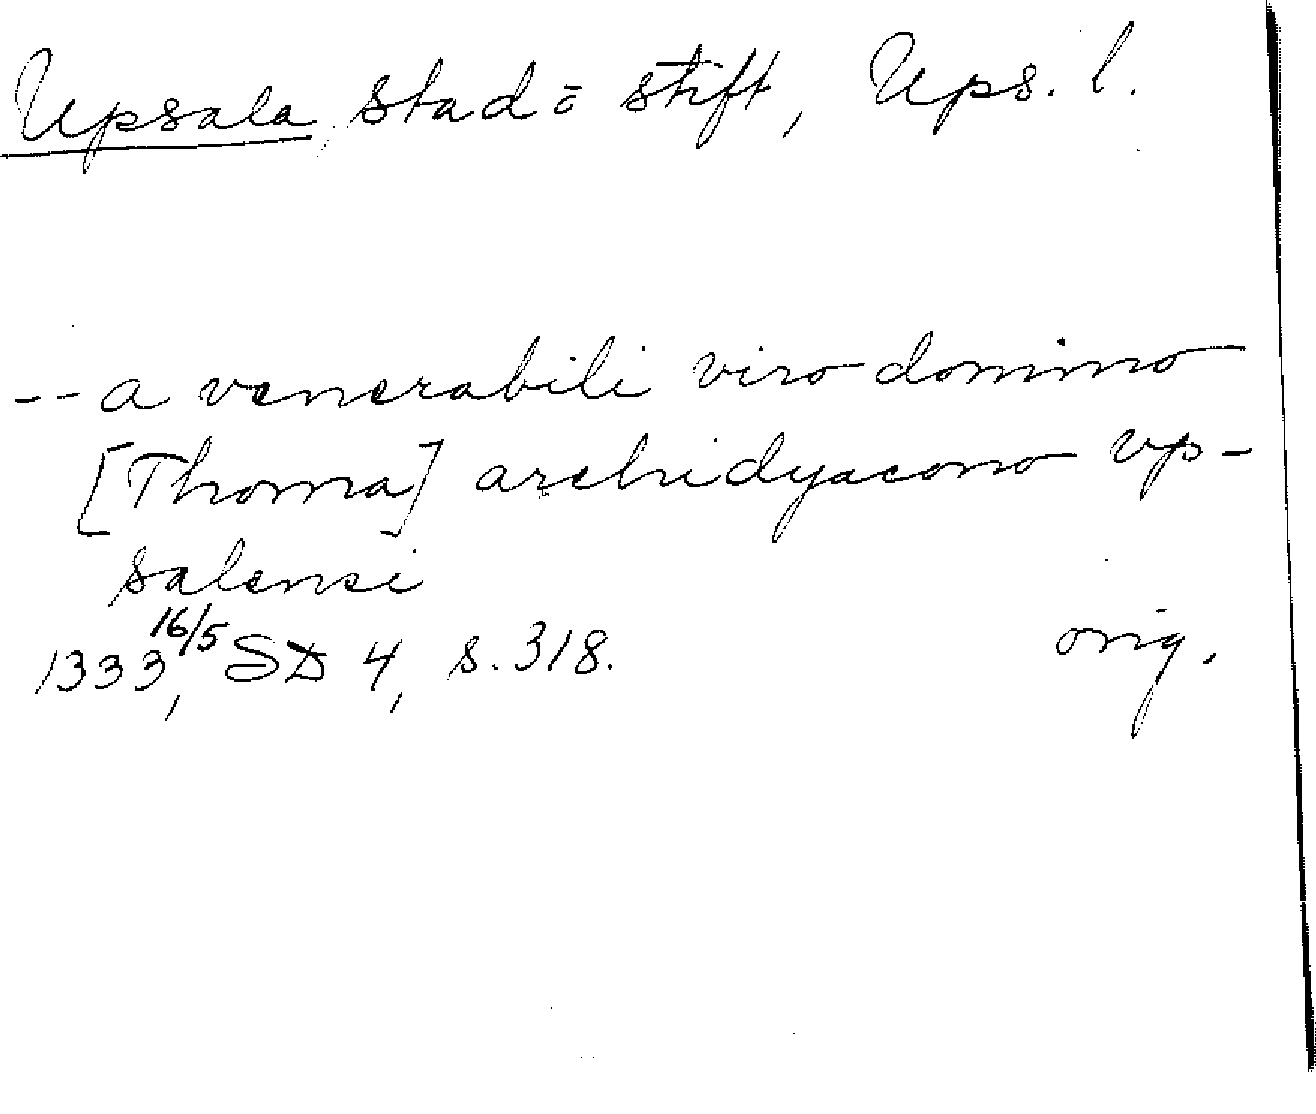 Upsala, stad o stift, Ups. l.
-- a venerabili viro domino
[Thoma] archidyacono vp-
salensi
1333, 16/5 SD 4, s. 318. orig.